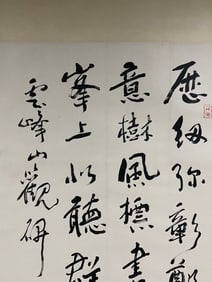 歷劫弥彰鄭
意樹風標書
峯上似聽群
雲峰山觀碑